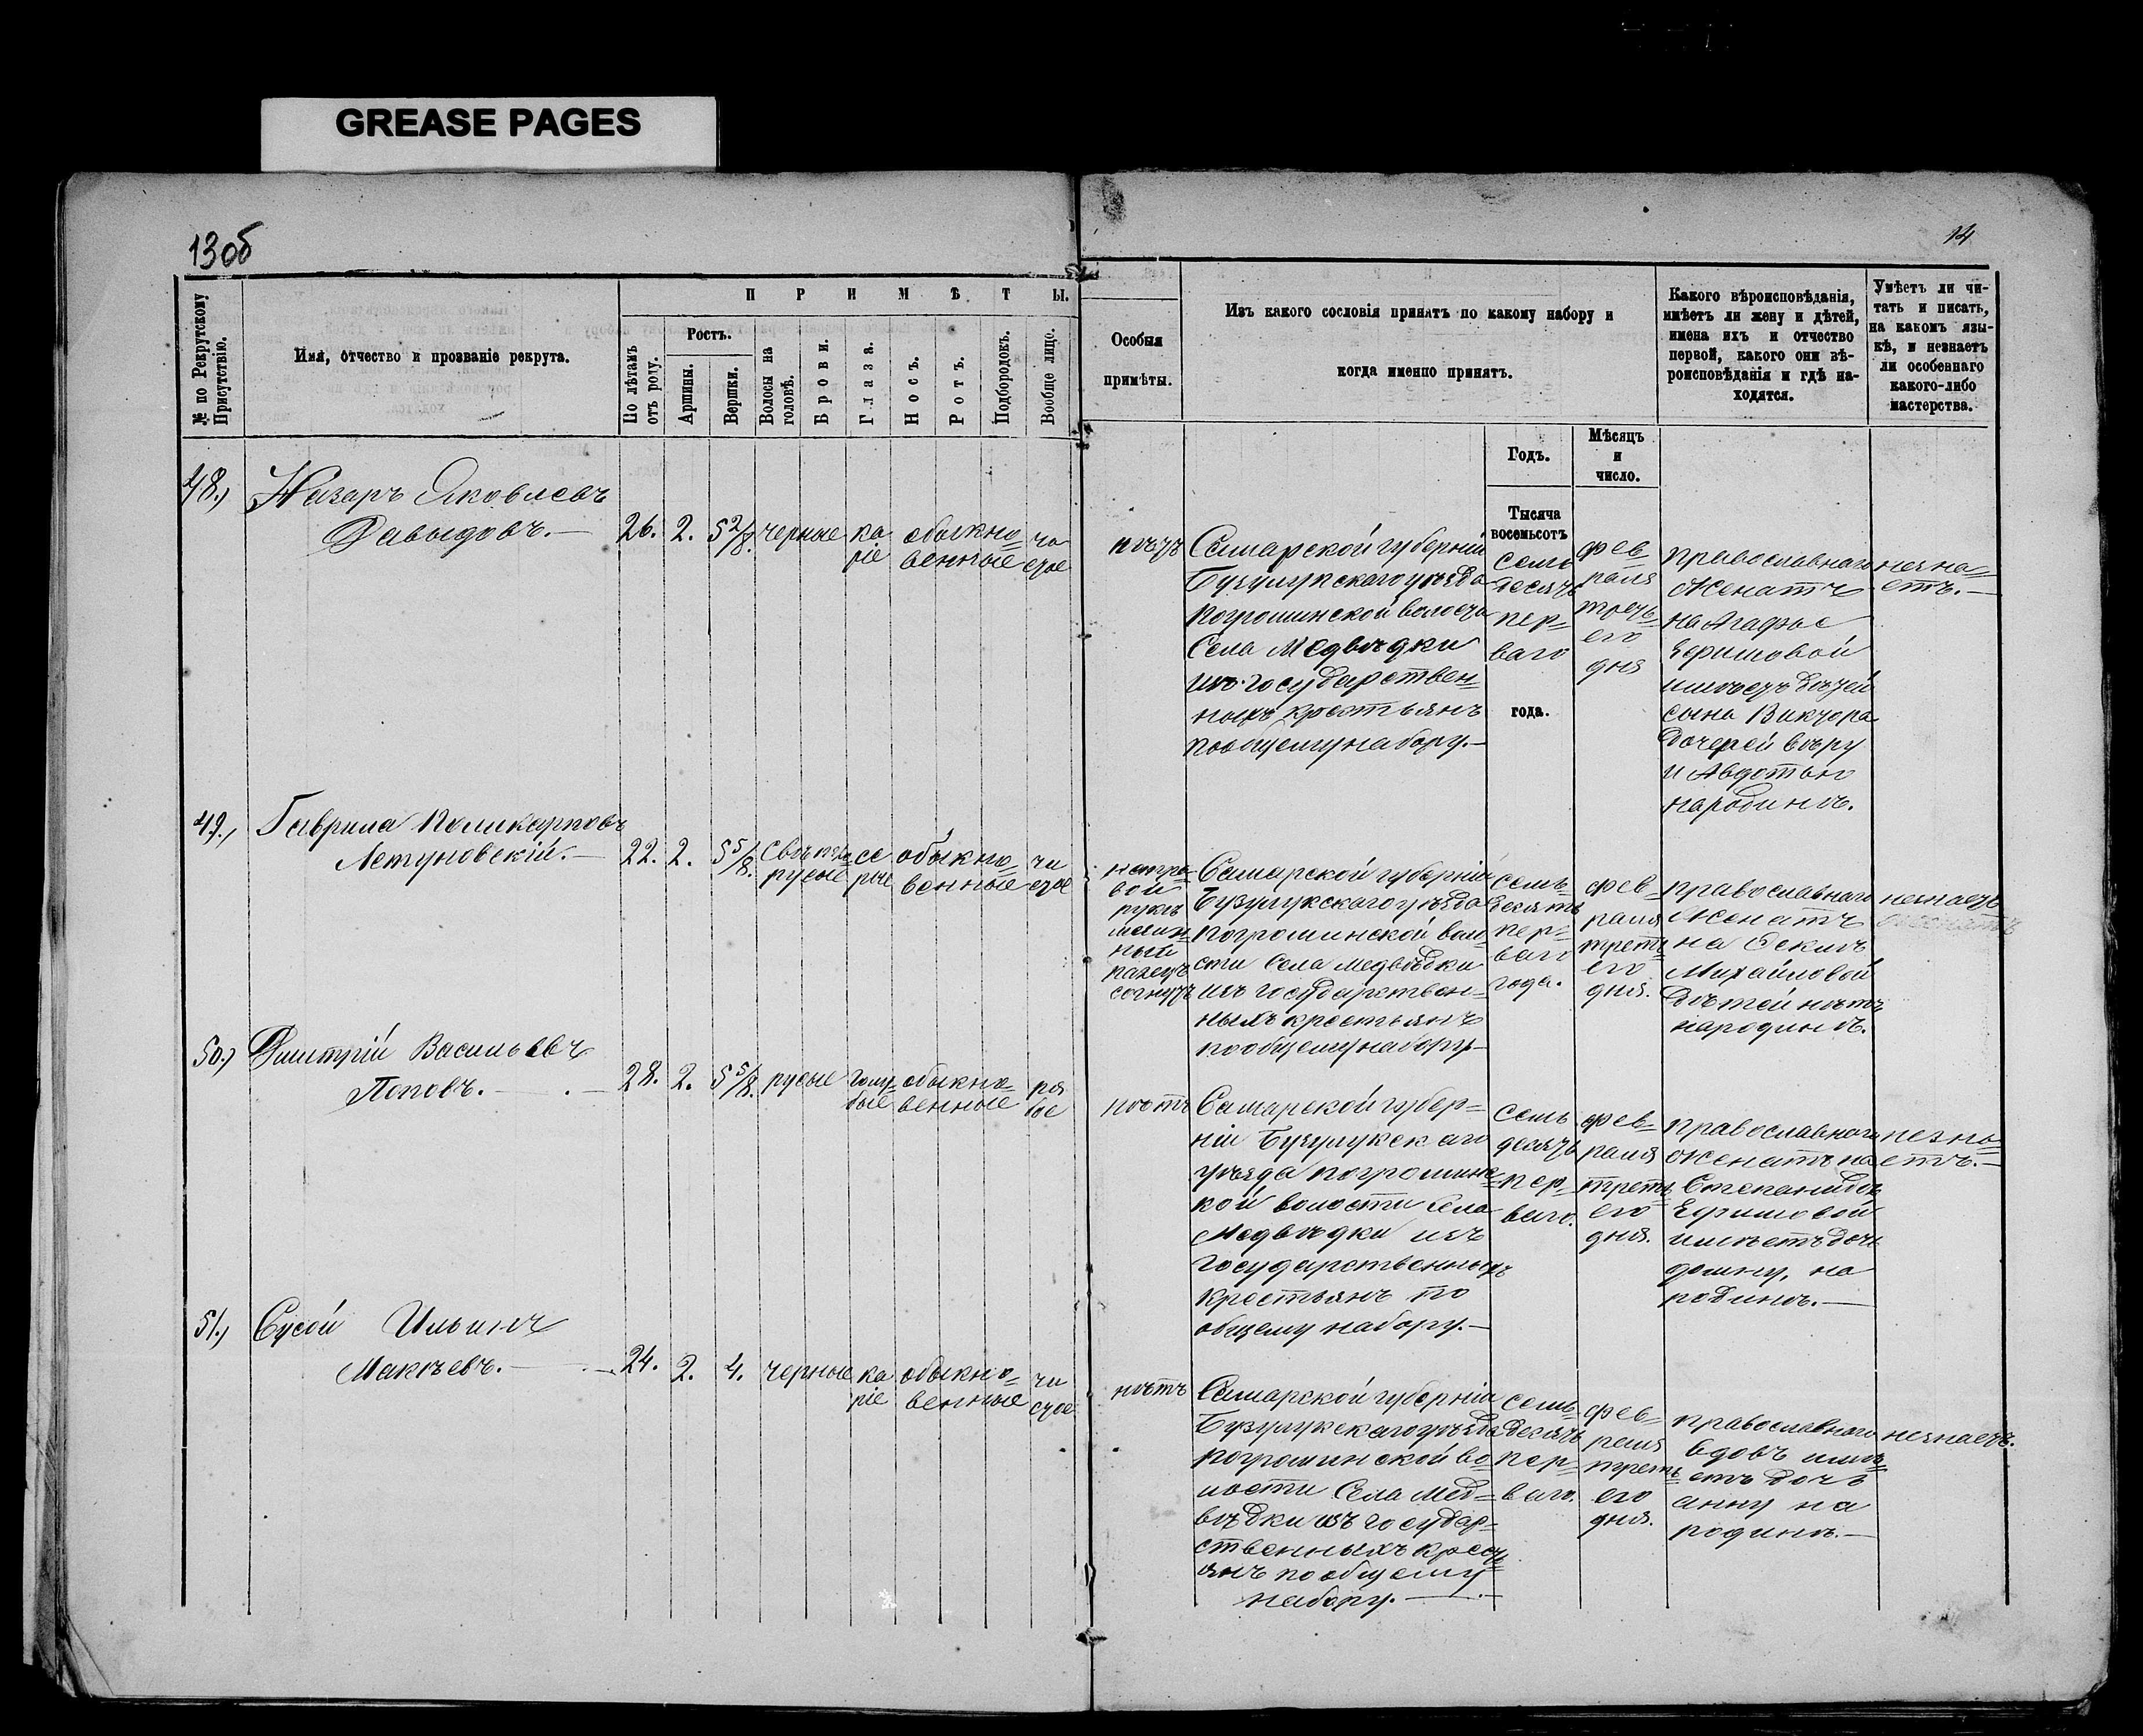 GREASE PAGES
13об
14
№ по Рекрутскому Присутствію.
Имя, отчество и прозваніе рекрута.
ПРИМѢТЫ.
По лѣтамъ отъ роду.
Ростъ.
Аршины.
Вершки.
Волосы на головѣ.
Брови.
Глаза.
Носъ.
Ротъ.
Подбородокъ.
Вообще лицо.
Особыя
примѣты.
Изъ какого сословія принятъ по какому набору и
когда именно принятъ.
Годъ.
Мѣсяцъ
и
число.
Какого вѣроисповѣданія,
имѣетъ ли жену и дѣтей,
имена ихъ и отчество
первой, какого они вѣ-
роисповѣданія и гдѣ на-
ходятся.
Умѣетъ ли чи-
тать и писать,
на какомъ язы-
кѣ, и незнаетъ
ли особеннаго
какого-либо
мастерства.
48.) Назаръ Яковлевъ
Давыдовъ.—
26. 2. 5 2/8. черные ка
ріе
обыкно=
венные
чи
стое
нѣтъ
Самарской губерніи
Бузулукскаго уѣзда
Погроминской волости
Села Медвѣдки
изъ государствен=
ныхъ крестьянъ
по общему набору.—
Тысяча
восемьсотъ
семь
десятъ
пер=
ваго
года.
фев=
раля
треть=
его
дня
православнаго
Женатъ
на Агафье
Ефимовой
имѣетъ дѣтей
сына Виктора
дочерей вѣру
и Авдотью
на родинѣ.
незна=
етъ.—
49.) Гаврила Поликарповъ
Летуновскій.—
22. 2. 5 5/8. свѣтло=
русые
се
рые
обыкно=
венные
чи
стое
на
вой
рукѣ
ный
палецъ
согнутъ
Самарской губерніи
Бузулукскаго уѣзда
Погроминской воло=
сти Села Медвѣдки
изъ государствен=
ныхъ крестьянъ
по общему набору—
семь=
десятъ
пер=
ваго
года.
фев=
раля
треть=
его
дня.
православнаго
Женатъ
на Фекле
Михайловой
Дѣтей нѣтъ
на родинѣ.
незнаетъ
50.) Дмитрій Васильевъ
Поповъ.—
28. 2. 5 5/8. русые голу=
бые
обыкно=
венные
ря
бое
нѣтъ
Самарской губер=
ніи Бузулукскаго
уѣзда Погроминс=
кой волости Села
Медвѣдки изъ
Государственныхъ
крестьянъ по
общему набору.—
семь
десятъ
пер=
ваго.
фев=
раля
треть=
его
дня.
православнаго
Женатъ на
Степанидѣ
Ефимовой
имѣетъ дочь
домну, на
родинѣ.—
незна=
етъ.—
51.) Сысой Ильинъ
Макѣевъ.—
24. 2. 4. черные ка
ріе
обыкно=
венные
чи
стое
нѣтъ
Самарской губерніи
Бузулукскаго уѣзда
Погроминской во=
лости Села Мед=
вѣдки изъ государ=
ственныхъ кресть=
янъ по общему
набору.—
семь=
десятъ
пер=
ваго.
фев=
раля
треть=
его
дня.
православнаго
вдовъ имѣ=
етъ дочь
анну на
родинѣ.—
незнаетъ.